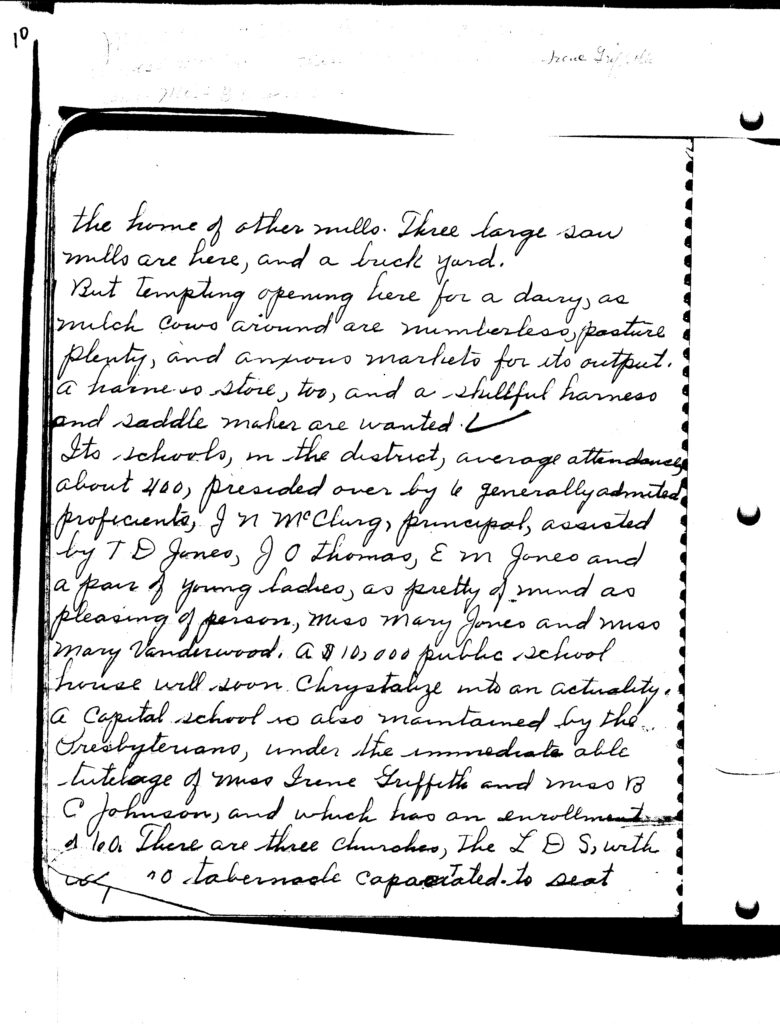 10
Irene Griffith
the home of other mills. Three large saw
mills are here, and a brick yard.
But tempting opening here for a dairy, as
milch cows around are numberless, pasture
plenty, and anxious markets for its output.
a harness store, too, and a skillful harness
and saddle maker are wanted. ✓
Its schools, in the district, average attendance
about 400, presided over by 6 generally admited
proficients, J N McClurg, principal, assisted
by T D Jones, J O Thomas, E M Jones and
a pair of young ladies, as pretty of mind as
pleasing of person, Miss Mary Jones and Miss
Mary Vanderwood. A $10,000 public school
house will soon Chrystalize into an actuality.
A Capital school is also maintained by the
Presbyterians, under the immediate able
tutelage of Miss Irene Griffith and Miss B
C Johnson, and which has an enrollment
of 60. There are three churches, The L D S, with
tabernacle capacitated to seat